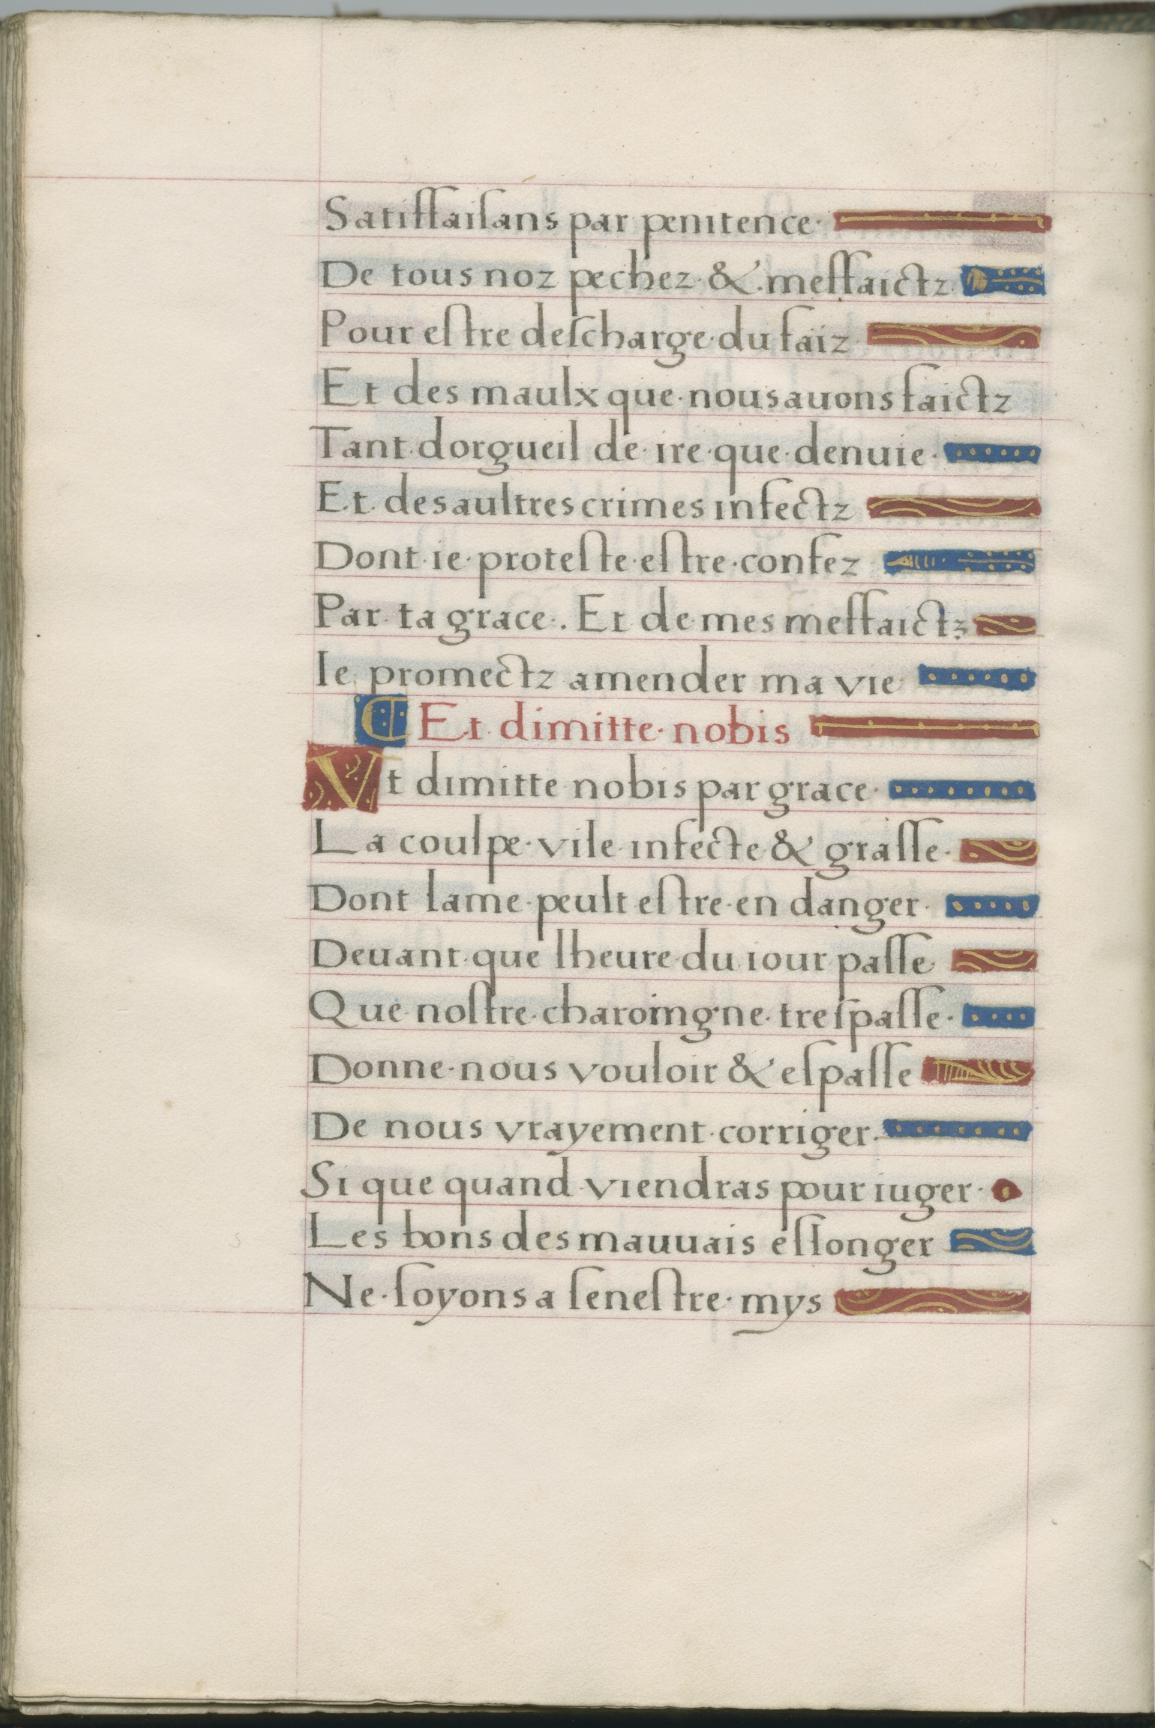 Satiſfaiſans par penitence·
De tous noz pechez·&·meſfaictz
Pour eſtre deſcharge·du faiz
Et des maulx que·nous auons faictz
Tant·dorgueil de·ire·que·denuie·
Et·des aultres crimes infectz
Dont·ie·proteſte·eſtre·confez
Par·ta grace·. Et de·mes meſfaictz
Ie promectz amender ma vie·
¶ Et dimitte·nobis
Vt dimitte nobis par grace·
La coulpe·vile·infecte & graſſe·
Dont lame·peult eſtre·en danger·
Deuant·que lheure·du iour paſſe·
Que·noſtre·charoingne·treſpaſſe·
Donne·nous vouloir & eſpaſſe
De nous vrayement·corriger·
Si que quand viendras pour iuger·
Les bons des mauuais eſlonger
Ne·ſoyons a ſeneſtre·mys